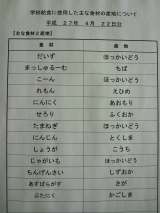 学校給食に使用した主な食材の産地について
平成 27年 4月 22日分
【主な食材と産地】
食材 産地
だいず ほっかいどう
まっしゅるーむ ちば
こーん ほっかいどう
れもん えひめ
にんにく あおもり
せろり ふくおか
たまねぎ ほっかいどう
にんじん とくしま
しょうが こうち
じゃがいも ほっかいどう
ちんげんさい しずおか
あすぱらがす さが
ぶたにく かごしま